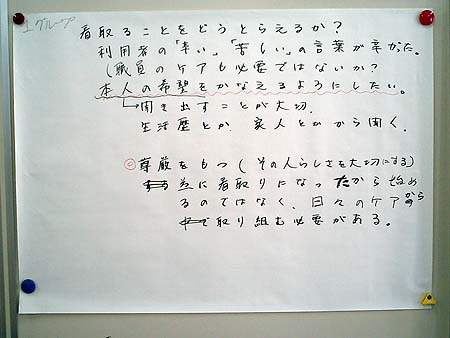 1グループ
看取ることをどうとらえるか?
利用者の「辛い」、「苦しい」の言葉が辛かった。
(職員のケアも必要ではないか?
本人の希望をかなえるようにしたい。
→聞き出すことが大切。
生活歴とか、家人とかから聞く。
◎尊厳をもつ(その人らしさを大切にする)
に看取りになったから始め
るのではなく、日々のケアから
取り組む必要がある。